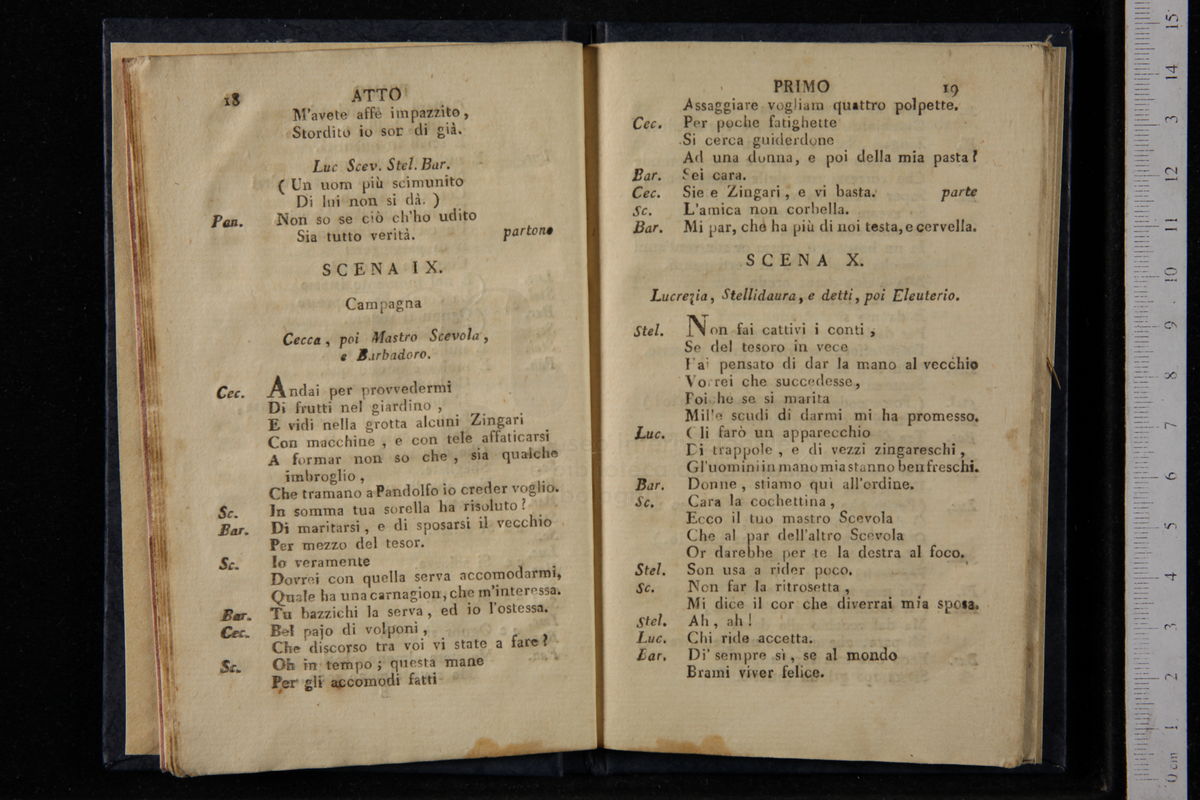 18 ATTO
M'avete affè impazzito,
Stordito io son di già.
Luc Scev. Stel. Bar.
( Un uom più scimunito
Di lui non si dà. )
Pan. Non so se ciò ch'ho udito
Sia tutto verità. partono
SCENA IX.
Campagna
Cecca, poi Mastro Scevola,
e Barbadoro.
Cec. Andai per provvedermi
Di frutti nel giardino,
E vidi nella grotta alcuni Zingari
Con macchine, e con tele affaticarsi
A formar non so che, sia qualche
imbroglio,
Che tramano a Pandolfo io creder voglio.
Sc. In somma tua sorella ha risoluto?
Bar. Di maritarsi, e di sposarsi il vecchio
Per mezzo del tesor.
Sc. Io veramente
Dovrei con quella serva accomodarmi,
Quale ha una carnagion, che m'interessa.
Bar. Tu bazzichi la serva, ed io l'ostessa.
Cec. Bel pajo di volponi,
Che discorso tra voi vi state a fare?
Sc. Oh in tempo; questa mane
Per gli accomodi fatti
PRIMO 19
Assaggiare vogliam quattro polpette.
Cec. Per poche fatighette
Si cerca guiderdone
Ad una donna, e poi della mia pasta?
Bar. Sei cara.
Cec. Sie e Zingari, e vi basta. parte
Sc. L'amica non corbella.
Bar. Mi par, che ha più di noi testa, e cervella.
SCENA X.
Lucrezia, Stellidaura, e detti, poi Eleuterio.
Stel. Non fai cattivi i conti,
Se del tesoro in vece
Hai pensato di dar la mano al vecchio
Vorrei che succedesse,
Poi he se si marita
Mille scudi di darmi mi ha promesso.
Luc. Gli farò un apparecchio
Di trappole, e di vezzi zingareschi,
Gl'uomini in mano mia stanno ben freschi.
Bar. Donne, stiamo quì all'ordine.
Sc. Cara la cochettina,
Ecco il tuo mastro Scevola
Che al par dell'altro Scevola
Or darebbe per te la destra al foco.
Stel. Son usa a rider poco.
Sc. Non far la ritrosetta,
Mi dice il cor che diverrai mia sposa.
Stel. Ah, ah!
Luc. Chi ride accetta.
Bar. Di' sempre sì, se al mondo
Brami viver felice.
0 cm 1 2 3 4 5 6 7 8 9 10 11 12 13 14 15